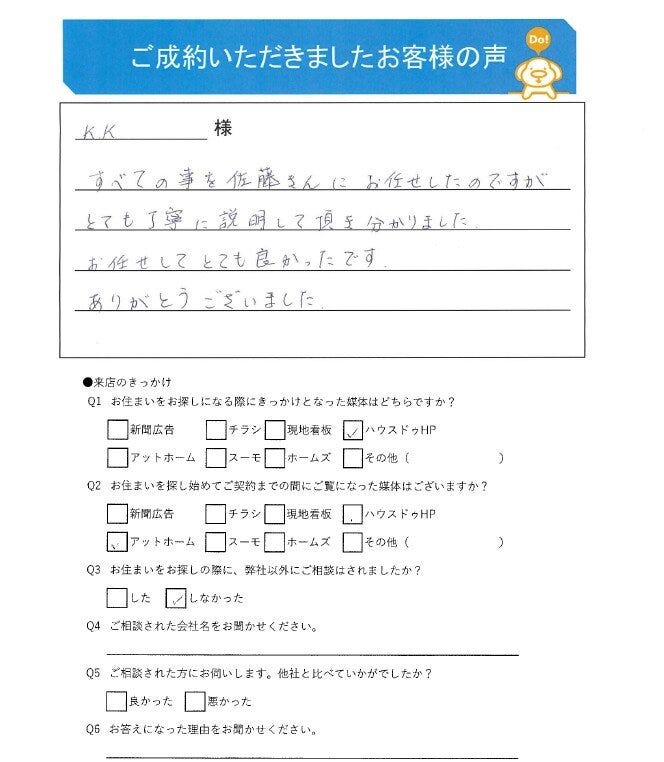 ご成約いただきましたお客様の声
Do!
K.K 様
すべての事を佐藤さんに お任せしたのですが
とても丁寧に説明して頂き分かりました.
お任せして とても良かったです.
ありがとうございました.
●来店のきっかけ
Q1 お住まいをお探しになる際にきっかけとなった媒体はどちらですか？
新聞広告 チラシ 現地看板 ✓ ハウスドゥHP
アットホーム スーモ ホームズ その他（ ）
Q2 お住まいを探し始めてご契約までの間にご覧になった媒体はございますか？
新聞広告 チラシ 現地看板 ハウスドゥHP
✓ アットホーム スーモ ホームズ その他（ ）
Q3 お住まいをお探しの際に、弊社以外にご相談はされましたか？
した ✓ しなかった
Q4 ご相談された会社名をお聞かせください。
Q5 ご相談された方にお伺いします。他社と比べていかがでしたか？
良かった 悪かった
Q6 お答えになった理由をお聞かせください。